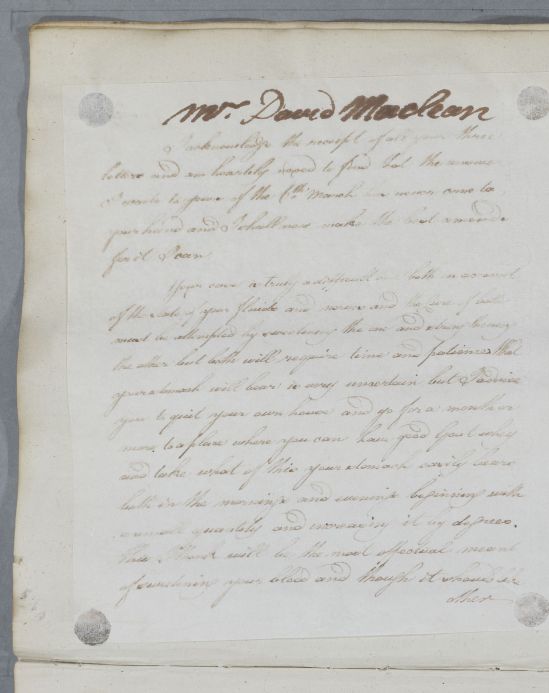 Mr. David Maclean
I acknowledge the receipt of all your three
letters and am heartily to find that the
I wrote to you of the 6th March has never come to
your hand and I shall now make the best amends
for it I can
Your case is truly a distressed one both on account
of the state of your fluids and nerves and the cure of both
must be attempted by sweetening the one and strengthening
the other but both will require time and patience What
your stomach will bear is very uncertain but I advise
you to quit your own house and go for a month or
more to a place where you can have good Goat whey
and take what of this your stomach easily bears
both in the morning and evening beginning with
a small quantity and increasing it by degrees
this I think will be the most effectual means
of sweetening your blood and though it should be
other